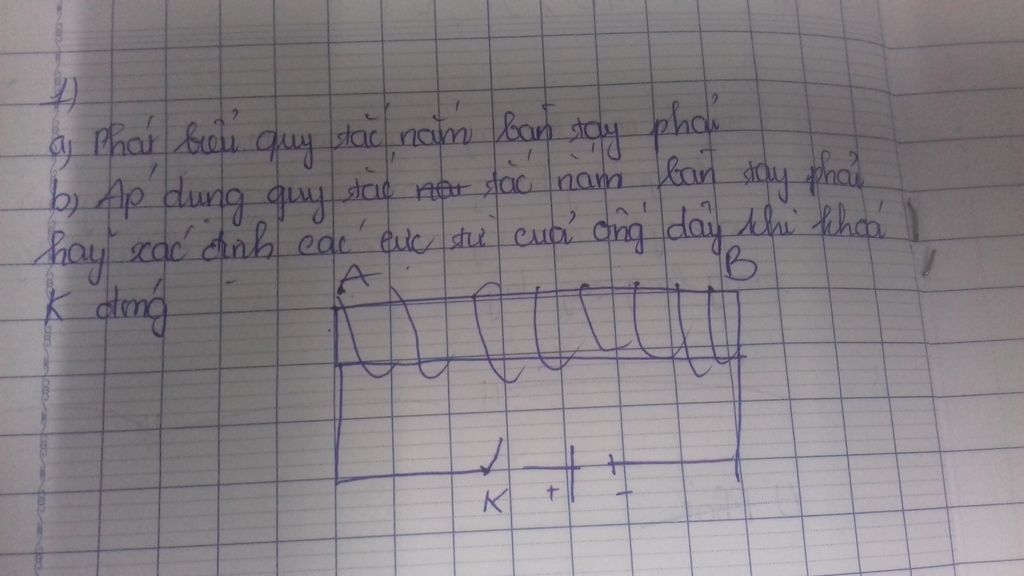 1)
a) Phát biểu quy tắc nắm bàn tay phải
b) Áp dụng quy tắc tắc nắm bàn tay phải
hãy xác định các cực từ của ống dây khi khoá
K đóng
A B
K + -